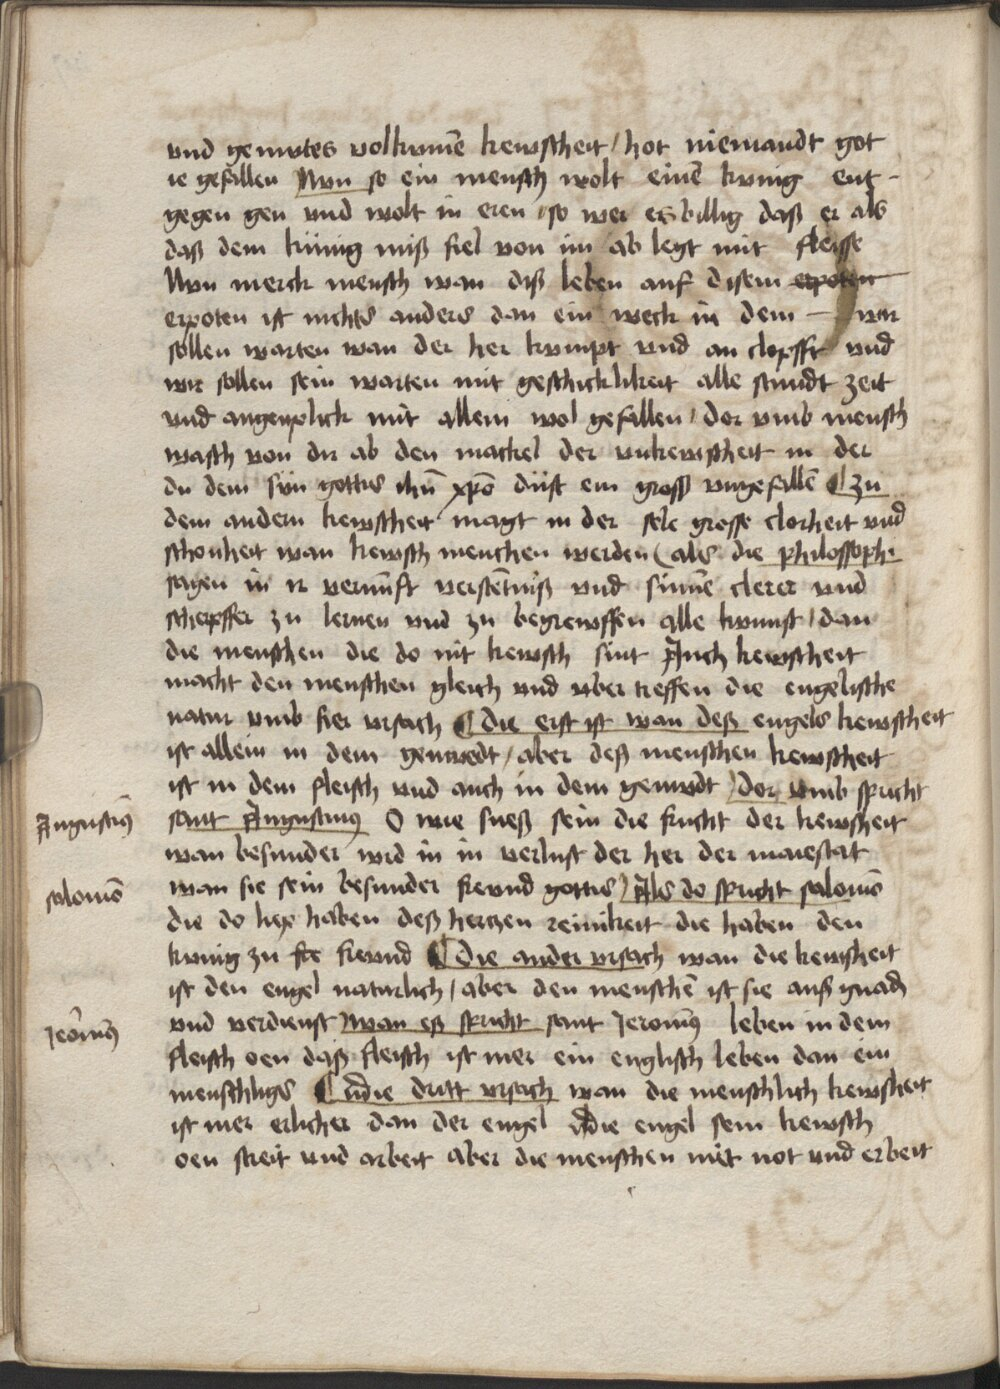 vnd gemutes volkumē kewscheit / hot niemandt got
ie gefallen Nun so ein mensch wolt einē kunig ent-
gegen gen vnd wolt in eren / so wer es billig daß er als
daß dem künig miß fiel von im ab legt mit fleisse
Nun merck mensch wan diß leben auf disem erpoten
erpoten ist nichts anders dan ein weck in dem — wir
sollen warten wan der her kumpt vnd an clopfft vnd
wir sollen sein warten mit geschicklikeit alle stundt zeit
vnd augenplick mit allem wol gefallen / dor vmb mensch
wasch von dir ab den mackel der vnkewscheit in der
du dem sün gottis ihū xpō düst ein gross vngefallē ¶ zu
dem andern kewscheit magt in der sele grosse clorheit vnd
schonheit wan kewsch menchen werden (als die philossophi
sagen in ir vernūft verstētniß vnd sinnē clerer vnd
scherpffer zu lernen vnd zu begrewffen alle kunnst / dan
die menschen die do nit kewsch sint Auch kewscheit
macht den menschen gleich vnd vber treffen die engelische
natur vmb fier vrsach ¶ die erst ist wan deß engels kewscheit
ist allein in dem gemuedt / aber deß menschen kewscheit
ist in dem fleisch vnd auch in dem gemudt / dor vmb spricht
Augustinū sant Augustinus O wie suess sein die frucht der kewsheit
wan besunder wird in in verlust der her der maiestat
salomō wan sie sein besunder frewnd gottis / Als do spricht salomō
die do liep haben deß hertzen reinikeit die haben den
kunig zu fre frewnd ¶ die ander vrsach wan die kewsheit
ist den engel naturlich / aber den menschē ist sie auß gnad
Jeronimū vnd verdienst wan eß spricht sant Jeronimū leben in dem
fleisch oen daß fleisch ist mer ein englisch leben dan ein
menschligs ¶ die dritt vrsach wan die menschlich kewsheit
ist mer erlicher dan der engel die engel sein kewsch
oen streit vnd arbeit aber die menschen mit not vnd erbeit